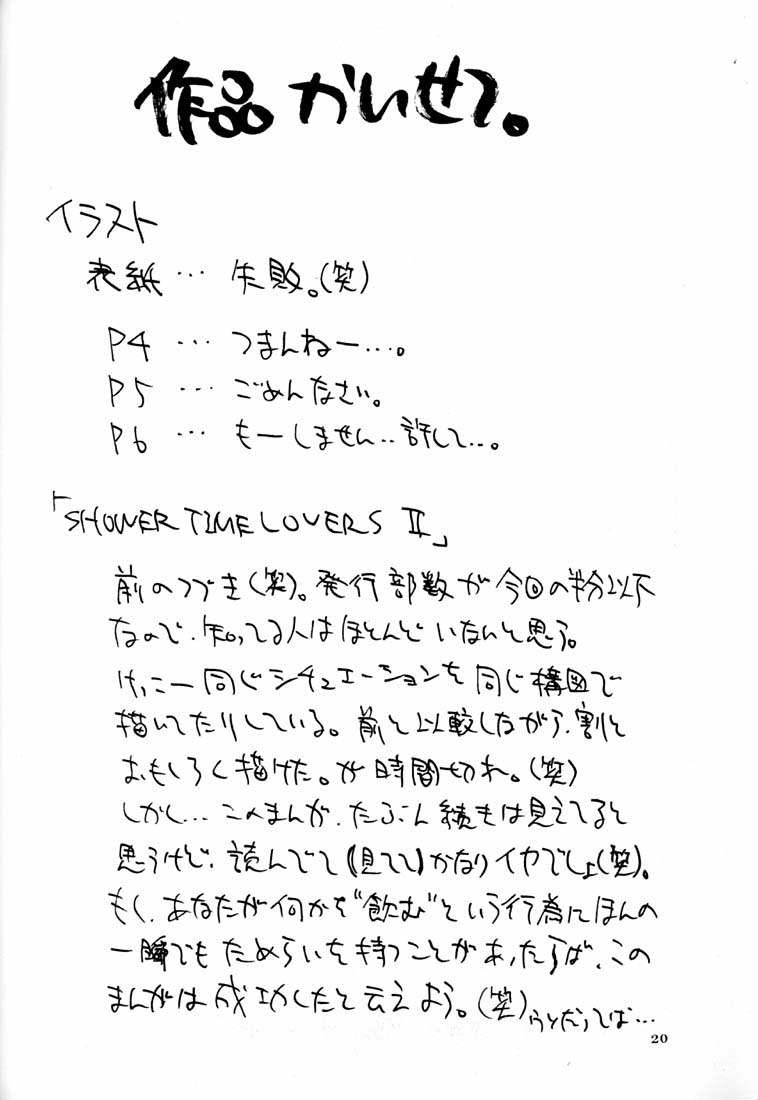 作品かいせつ。
イラスト
表紙… 失敗。(笑)
P4 … つまんねー…。
P5 … ごめんなさい。
P6 … もーしません‥許して…。
「SHOWER TIME LOVERS II」
前のつづき(笑)。発行部数が今回の半分以下
なので、知ってる人はほとんどいないと思う。
けっこー同じシチュエーションを同じ構図で
描いてたりしている。前と比較しながら、割と
おもしろく描けた。が時間切れ。(笑)
しかし… このまんが、たぶん続きは見えてると
思うけど、読んでて(見てて)かなりイヤでしょ(笑)。
もし、あなたが何かを"飲む"という行為にほんの
一瞬でもためらいを持つことがあったらば、この
まんがは成功したと云えよう。(笑) うそだってば…
20